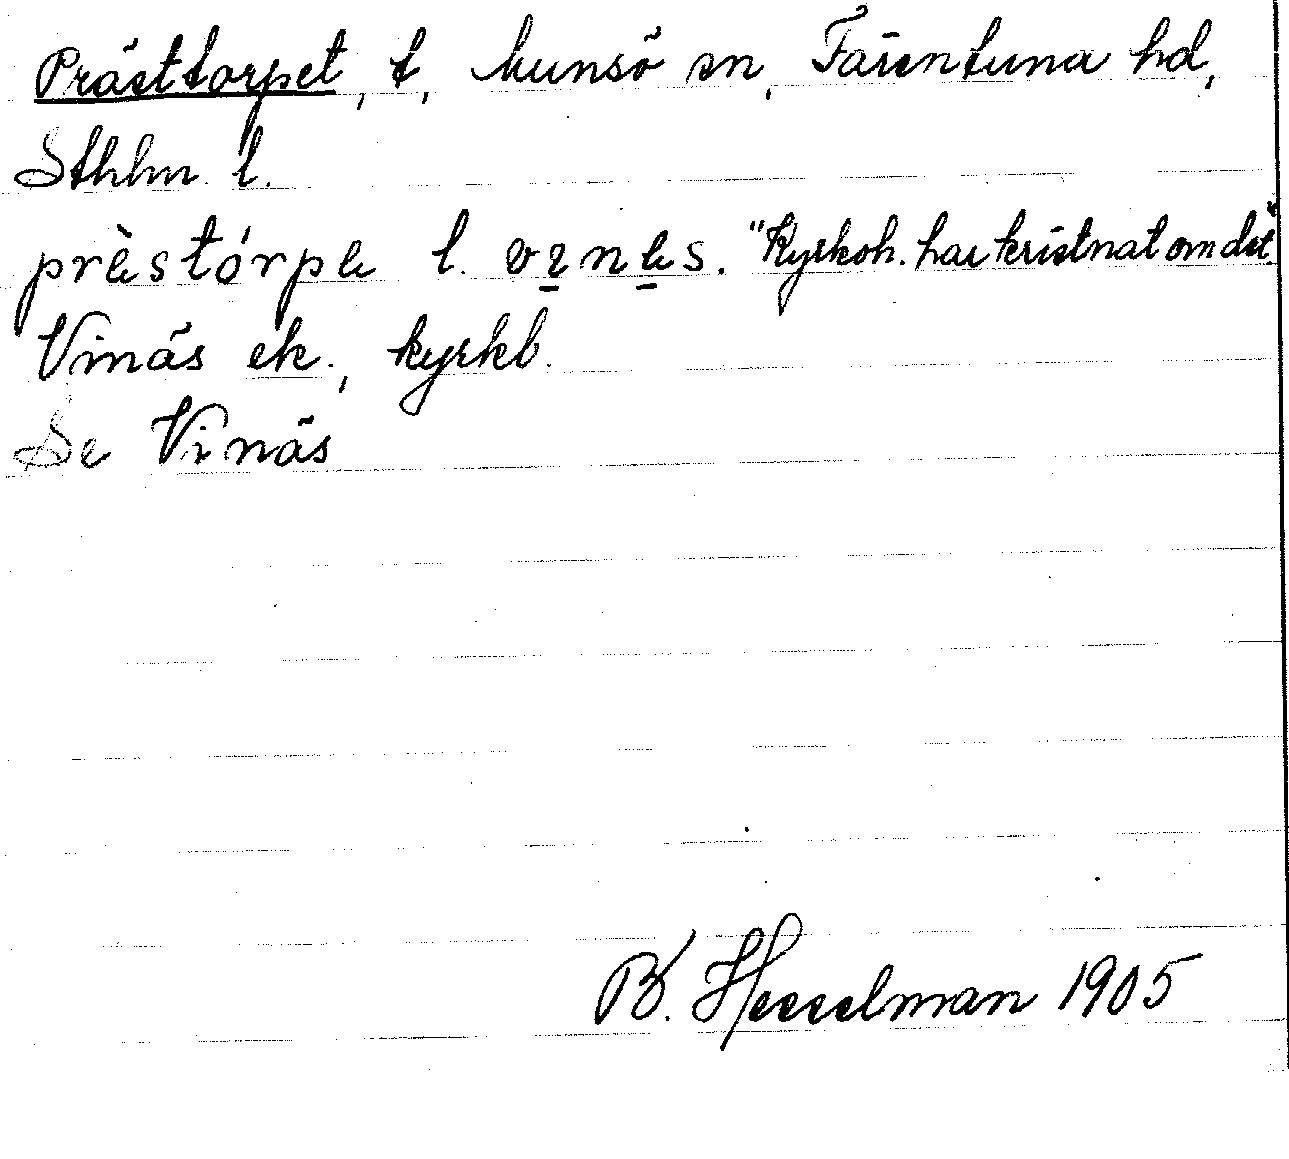 Prästtorpet, t, Munsö sn, Färentuna hd,
Sthlm l.
prèstórpe l. vines. "Kyrkoh. har kristnat om det"
Vinäs ek., kyrkb.
Se Vinäs
B. Hesselman 1905